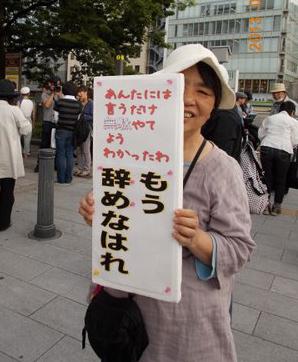 あんたには
言うだけ
無駄やて
よう
わかったわ
もう
辞めなはれ
2013